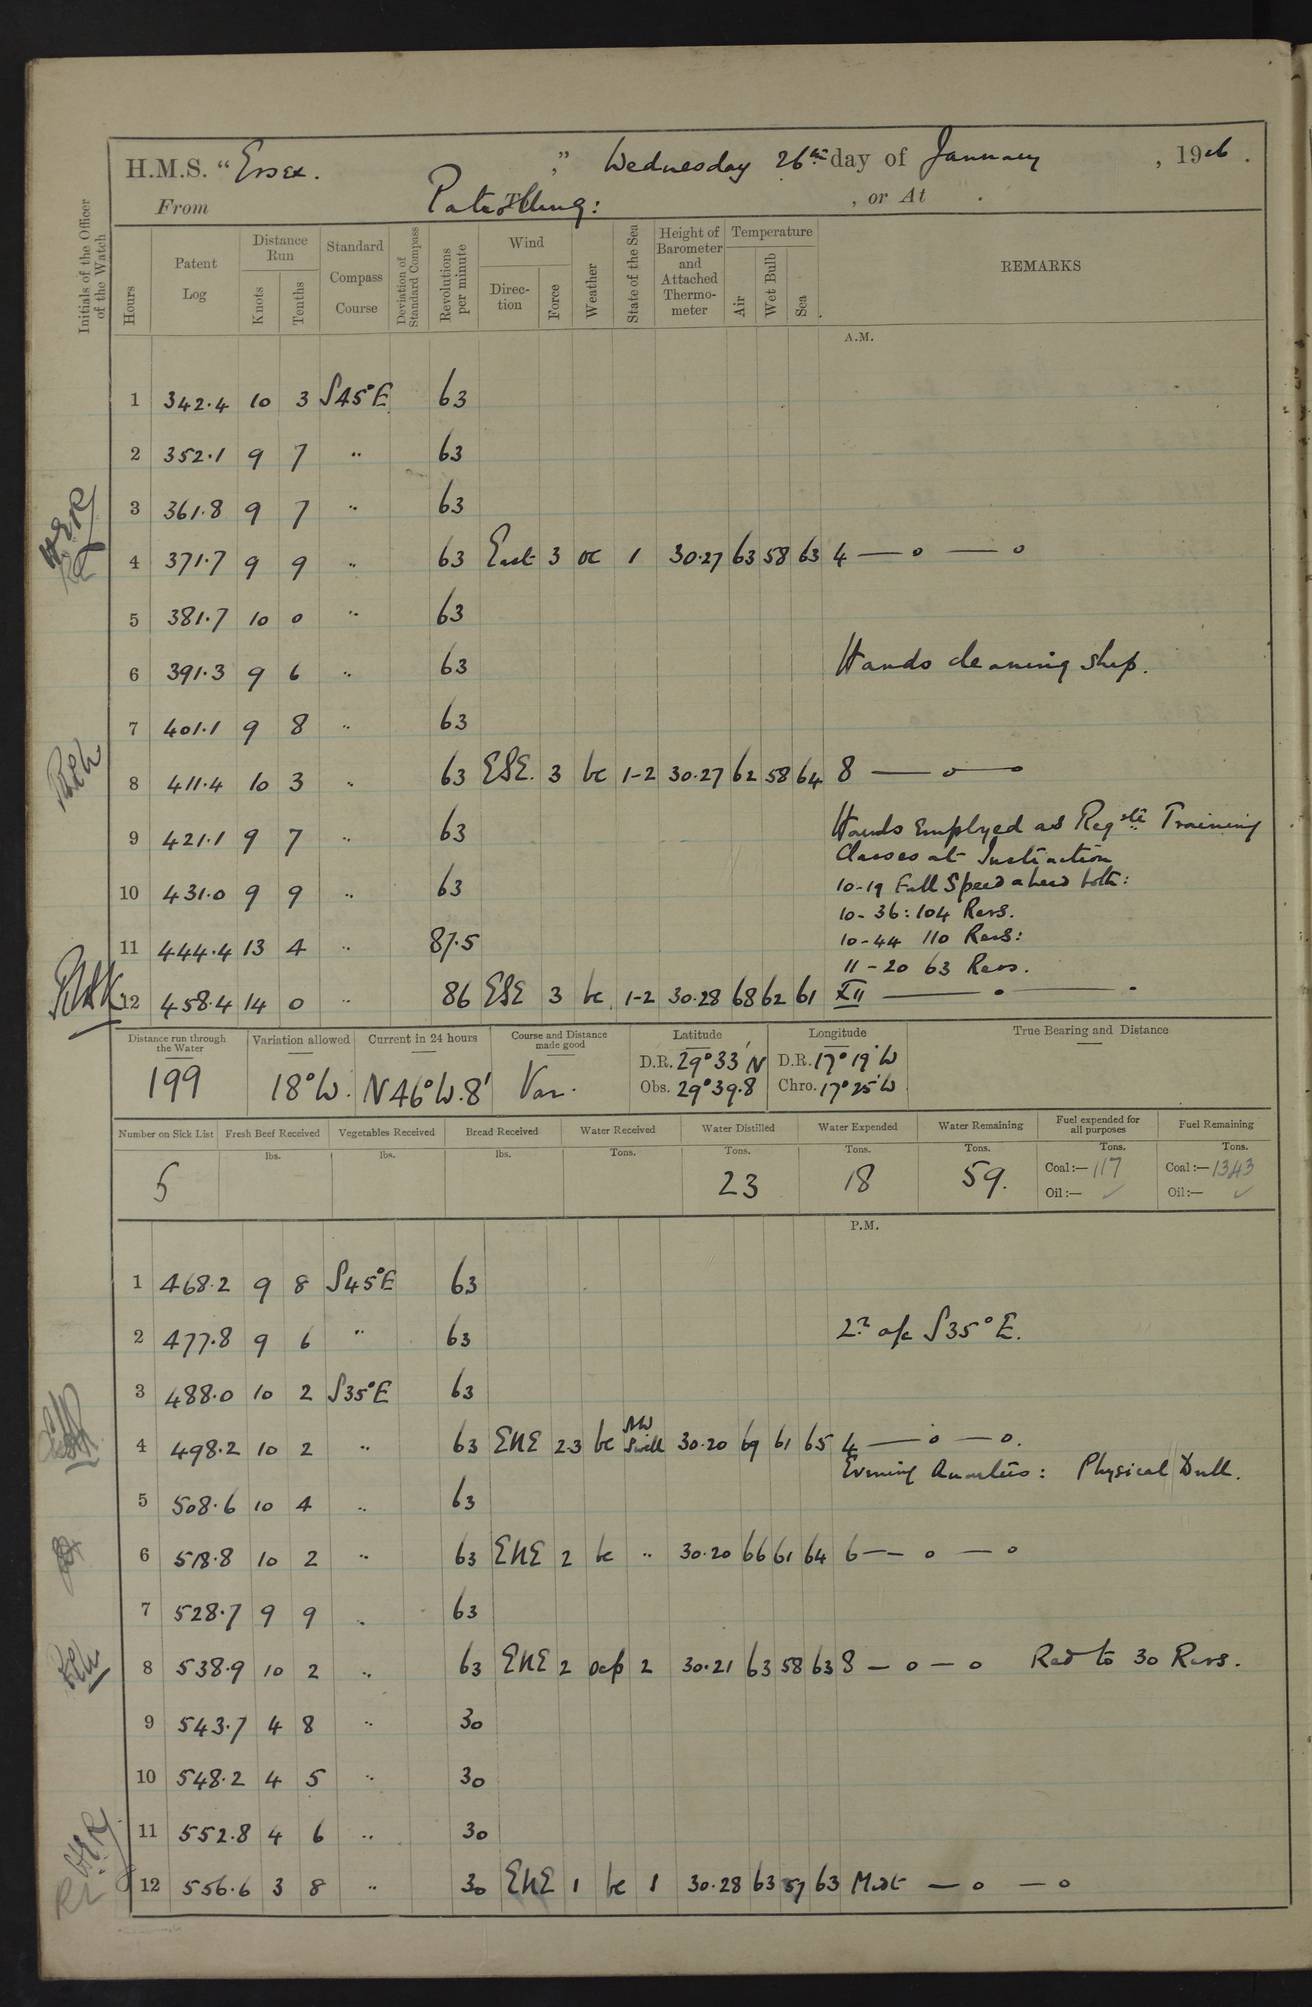 H.M.S. “Essex.” Wednesday 26th day of January, 1916.
From Patrolling: , or At .
Initials of the Officer of the Watch
Hours Patent Log Distance Run Knots Tenths Standard Compass Course Deviation of Standard Compass Revolutions per minute Wind Direc-tion Force Weather State of the Sea Height of Barometer and Attached Thermo-meter Temperature Air Wet Bulb Sea REMARKS
A.M.
1 342.4 10 3 S45°E 63
2 352.1 9 7 " 63
3 361.8 9 7 " 63
4 371.7 9 9 " 63 East 3 oc 1 30.27 63 58 63 4 — o — o
5 381.7 10 0 " 63
6 391.3 9 6 " 63 Hands cleaning ship.
7 401.1 9 8 " 63
8 411.4 10 3 " 63 ESE. 3 bc 1-2 30.27 62 58 64 8 — o — o
9 421.1 9 7 " 63 Hands Employed as Reqte Training
Classes at Instruction
10 431.0 9 9 " 63 10-19 Full Speed ahead both:
10-36: 104 Revs.
11 444.4 13 4 " 87.5 10-44 110 Revs:
11-20 63 Revs.
12 458.4 14 0 " 86 ESE 3 bc 1-2 30.28 68 62 61 XII — . — .
Distance run through the Water Variation allowed Current in 24 hours Course and Distance made good Latitude Longitude True Bearing and Distance
199 18°W. N46°W.8' Var. D.R. 29°33'N D.R. 17°19'W
Obs. 29°39.8 Chro. 17°25'W
Number on Sick List Fresh Beef Received Vegetables Received Bread Received Water Received Water Distilled Water Expended Water Remaining Fuel expended for all purposes Fuel Remaining
lbs. lbs. lbs. Tons. Tons. Tons. Tons. Tons. Tons.
5 23 18 59. Coal:— 117 Coal:— 1343
Oil:— ✓ Oil:— ✓
P.M.
1 468.2 9 8 S45°E 63
2 477.8 9 6 " 63 2? a/c S35°E.
3 488.0 10 2 S35°E 63
4 498.2 10 2 " 63 ENE 2.3 bc NW Swell 30.20 69 61 65 4 — o — o.
Evening Quarters: Physical Drill.
5 508.6 10 4 " 63
6 518.8 10 2 " 63 ENE 2 bc " 30.20 66 61 64 6 — — o — o
7 528.7 9 9 " 63
8 538.9 10 2 " 63 ENE 2 ocp 2 30.21 63 58 63 8 — o — o Red to 30 Revs.
9 543.7 4 8 " 30
10 548.2 4 5 " 30
11 552.8 4 6 " 30
12 556.6 3 8 " 30 ENE 1 bc 1 30.28 63 57 63 Midt — o — o